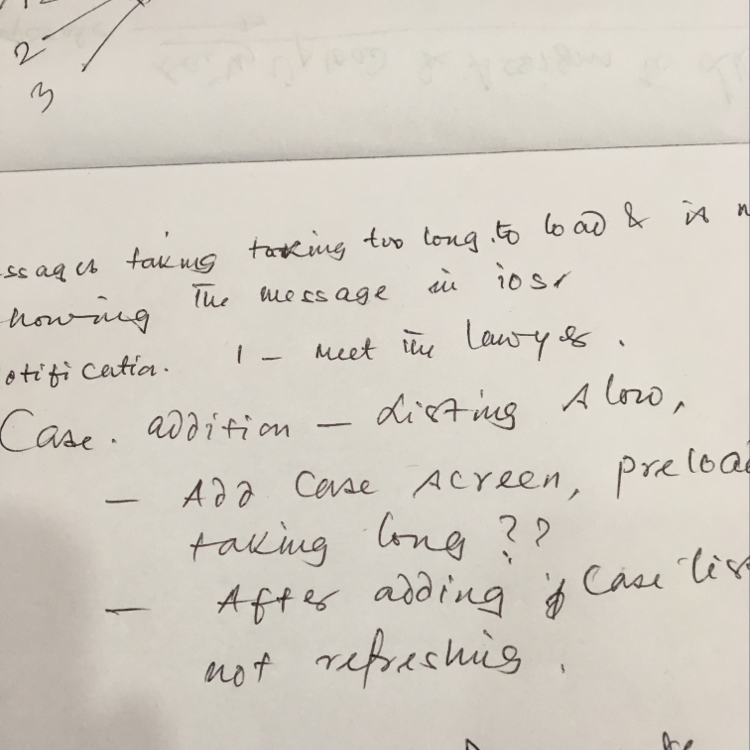 2
3
ssages taking taking too long to load & is n
howing The message in ios,
otification. 1 - Meet the lawyer.
Case. addition - Listing slow,
- Add Case screen, preload
taking long ??
- After adding Case lis
not refreshing.